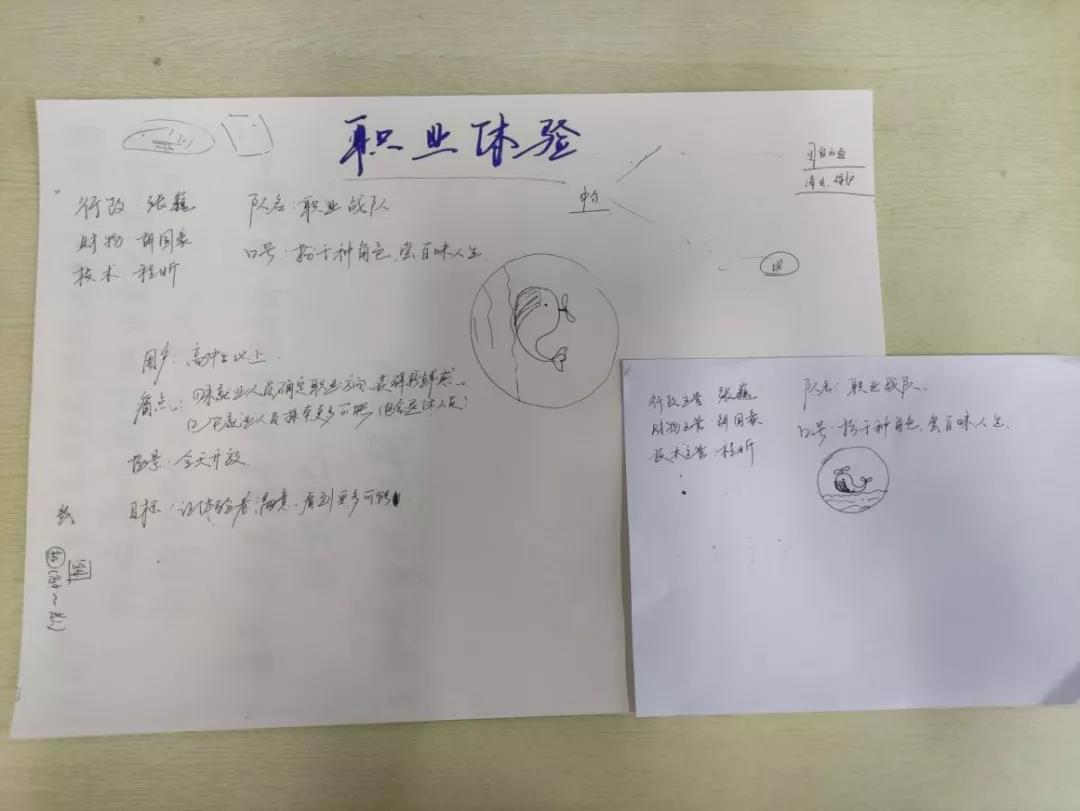 职业体验
行政:张巍
财物:胡国豪
技术:程昕
队名:职业战队
口号:扮千种角色,尝百味人生.
中介
用户:高中生以上
痛点:(1)未就业人员确定职业方向,获得新鲜感。
(2)已就业人员探索更多可能(包含退休人员)
场景:全天开放.
目标:让体验者满意,看到更多可能
行政主管 张巍
财物主管:胡国豪
技术主管:程昕
队名:职业战队.
口号:扮千种角色,尝百味人生.